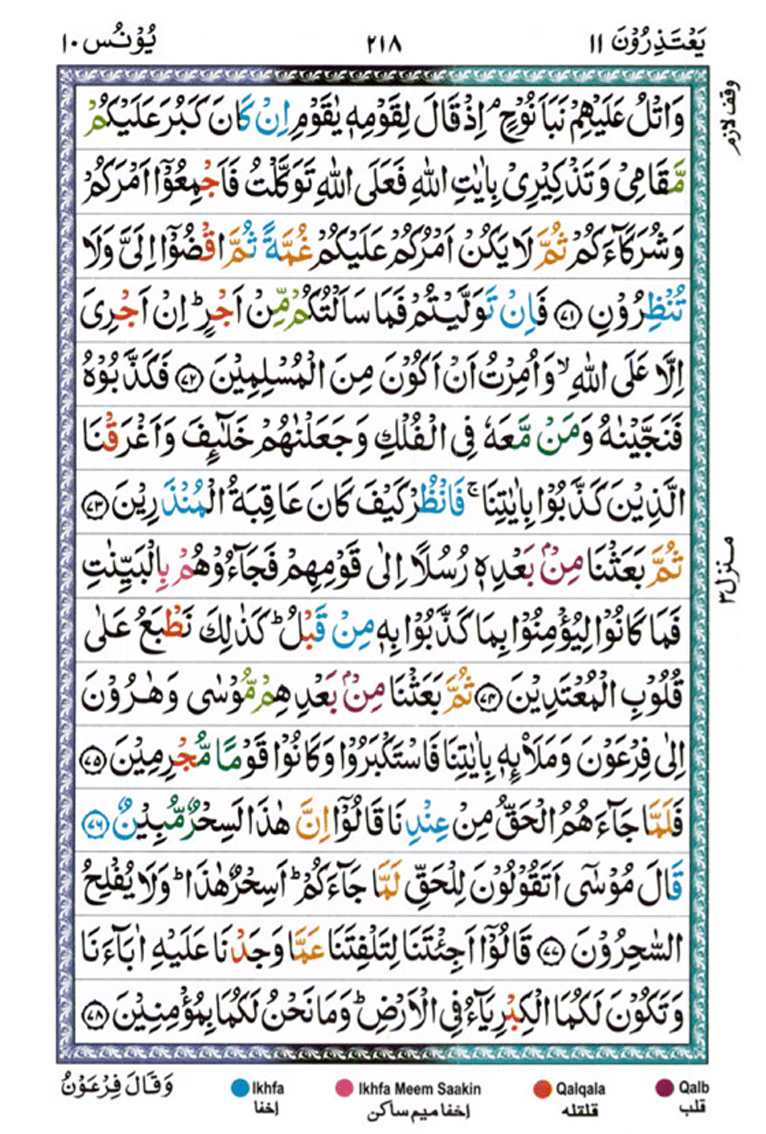 یَعْتَذِرُوْنَ ۱۱ ۲۱۸ یُوْنُس ۱۰
وقف لازم
وَاتْلُ عَلَیْهِمْ نَبَاَ نُوْحٍ ۘ اِذْ قَالَ لِقَوْمِهٖ یٰقَوْمِ اِنْ كَانَ كَبُرَ عَلَیْكُمْ
مَّقَامِیْ وَ تَذْكِیْرِیْ بِاٰیٰتِ اللّٰهِ فَعَلَی اللّٰهِ تَوَكَّلْتُ فَاَجْمِعُوْۤا اَمْرَكُمْ
وَ شُرَكَآءَكُمْ ثُمَّ لَا یَكُنْ اَمْرُكُمْ عَلَیْكُمْ غُمَّةً ثُمَّ اقْضُوْۤا اِلَیَّ وَلَا
تُنْظِرُوْنِ ﴿۷۱﴾ فَاِنْ تَوَلَّیْتُمْ فَمَا سَاَلْتُكُمْ مِّنْ اَجْرٍ ؕ اِنْ اَجْرِیَ
اِلَّا عَلَی اللّٰهِ ۙ وَاُمِرْتُ اَنْ اَكُوْنَ مِنَ الْمُسْلِمِیْنَ ﴿۷۲﴾ فَكَذَّبُوْهُ
فَنَجَّیْنٰهُ وَمَنْ مَّعَهٗ فِی الْفُلْكِ وَجَعَلْنٰهُمْ خَلٰٓىِٕفَ وَاَغْرَقْنَا
الَّذِیْنَ كَذَّبُوْا بِاٰیٰتِنَا ۚ فَانْظُرْ كَیْفَ كَانَ عَاقِبَةُ الْمُنْذَرِیْنَ ﴿۷۳﴾
ثُمَّ بَعَثْنَا مِنْۢ بَعْدِهٖ رُسُلًا اِلٰی قَوْمِهِمْ فَجَآءُوْهُمْ بِالْبَیِّنٰتِ
فَمَا كَانُوْا لِیُؤْمِنُوْا بِمَا كَذَّبُوْا بِهٖ مِنْ قَبْلُ ؕ كَذٰلِكَ نَطْبَعُ عَلٰی
قُلُوْبِ الْمُعْتَدِیْنَ ﴿۷۴﴾ ثُمَّ بَعَثْنَا مِنْۢ بَعْدِهِمْ مُّوْسٰی وَ هٰرُوْنَ
اِلٰی فِرْعَوْنَ وَمَلَا۟ىِٕهٖ بِاٰیٰتِنَا فَاسْتَكْبَرُوْا وَكَانُوْا قَوْمًا مُّجْرِمِیْنَ ﴿۷۵﴾
فَلَمَّا جَآءَهُمُ الْحَقُّ مِنْ عِنْدِنَا قَالُوْۤا اِنَّ هٰذَا لَسِحْرٌ مُّبِیْنٌ ﴿۷۶﴾
قَالَ مُوْسٰۤی اَتَقُوْلُوْنَ لِلْحَقِّ لَمَّا جَآءَكُمْ ؕ اَسِحْرٌ هٰذَا ؕ وَلَا یُفْلِحُ
السّٰحِرُوْنَ ﴿۷۷﴾ قَالُوْۤا اَجِئْتَنَا لِتَلْفِتَنَا عَمَّا وَجَدْنَا عَلَیْهِ اٰبَآءَنَا
وَ تَكُوْنَ لَكُمَا الْكِبْرِیَآءُ فِی الْاَرْضِ ؕ وَمَا نَحْنُ لَكُمَا بِمُؤْمِنِیْنَ ﴿۷۸﴾
منزل ۳
وَقَالَ فِرْعَوْنُ
Ikhfa اخفا
Ikhfa Meem Saakin اخفا میم ساکن
Qalqala قلقله
Qalb قلب